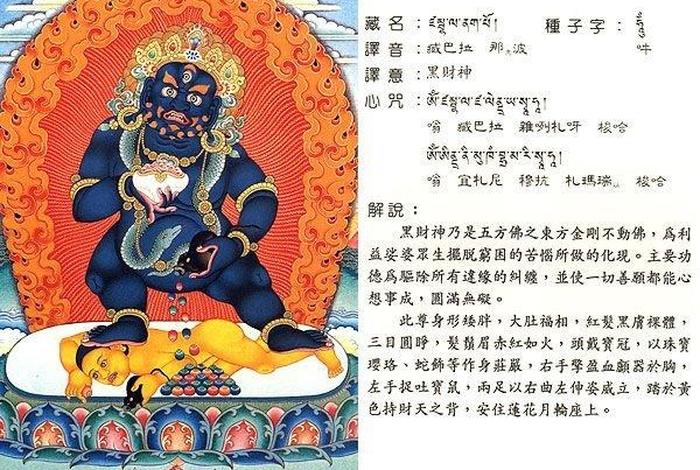 藏名：ཛམྦྷ་ལ་ནག་པོ།　種子字：
譯音：臧巴拉　那 波　　吽
譯意：黑財神
心咒：ཨོཾ་ཛམྦྷ་ལ་ཛ་ལེནྡྲ་ཡ་སྭཱ་ཧཱ།
嗡　臧巴拉　雜咧札呀　梭哈
ཨོཾ་ཨིནྡྲ་ནི་མུ་ཁཾ་བྷྲ་མ་རི་སྭཱ་ཧཱ།
嗡　宜札尼　穆抗　札瑪瑞　梭哈
解說：
黑財神乃是五方佛之東方金剛不動佛，為利
益娑婆眾生擺脫窮困的苦惱所做的化現。主要功
德為驅除所有違緣的糾纏，並使一切善願都能心
想事成，圓滿無礙。
此尊身形矮胖，大肚福相，紅髮黑膚裸體，
三目圓睜，髮鬚眉赤紅如火，頭戴寶冠，以珠寶
瓔珞、蛇飾等作身莊嚴，右手擎盈血顱器於胸，
左手捉吐寶鼠，兩足以右曲左伸姿威立，踏於黃
色持財天之背，安住蓮花月輪座上。